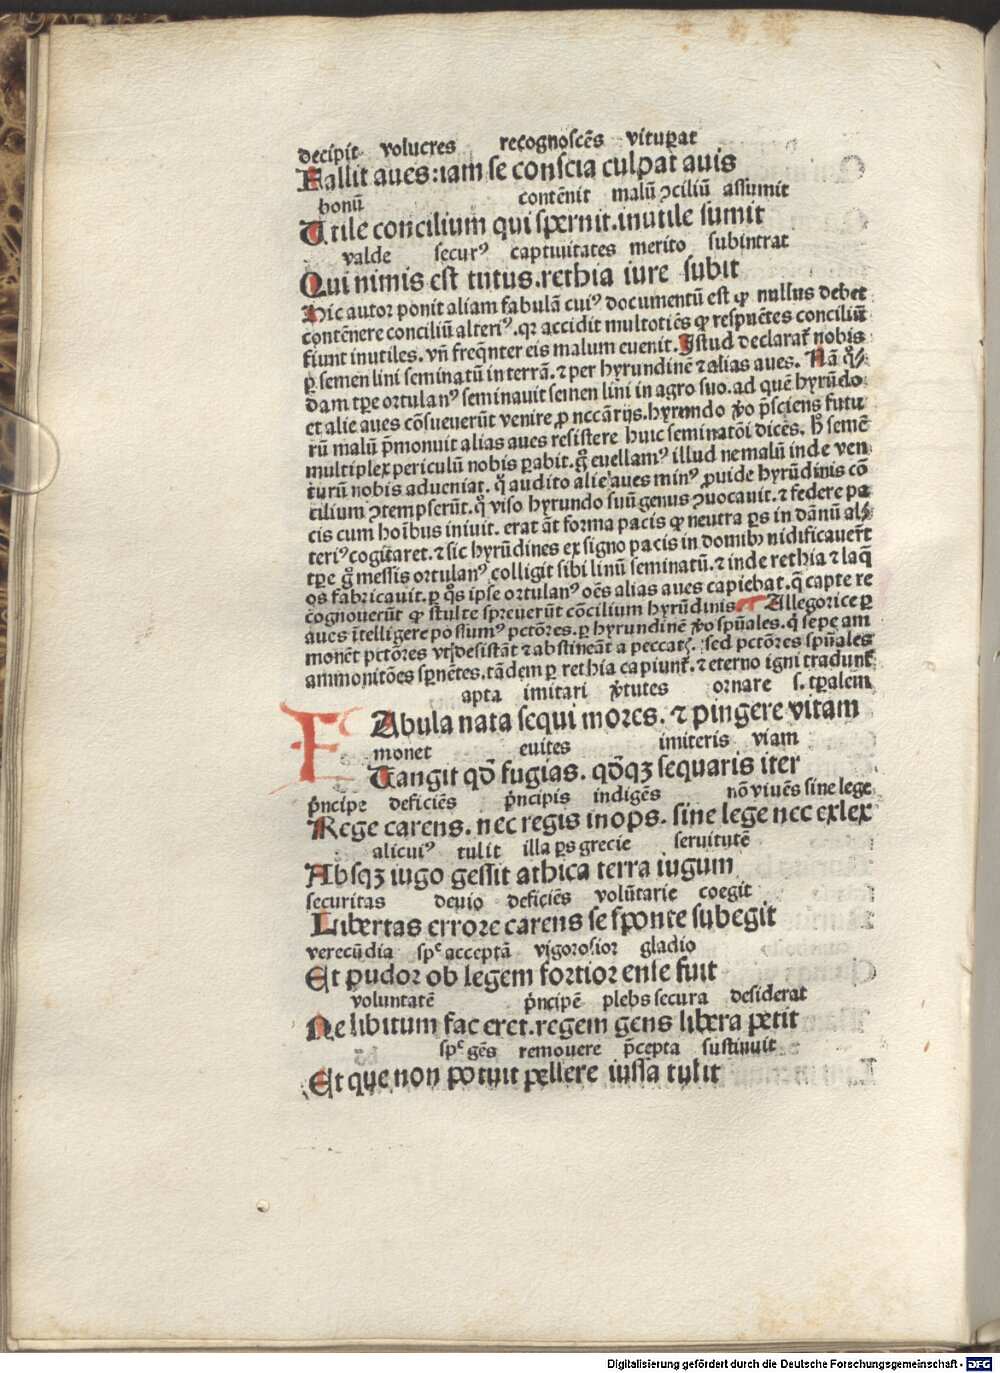 decipit volucres recognoscẽs vituꝑat
Fallit aues:iam se conscia culpat auis
bonũ contẽnit malũ ꝯciliũ assumit
Utile concilium qui spernit.inutile sumit
valde securꝰ captiuitates merito subintrat
Qui nimis est tutus.rethia iure subit
Hic autor ponit aliam fabulã cuiꝰ documentũ est ꝙ nullus debet
contẽnere conciliũ alteriꝰ.qꝛ accidit multotiẽs ꝙ respuẽtes conciliũ
fiunt inutiles. vñ freq̃nter eis malum euenit. Istud declarat᷑ nobis
ꝑ semen lini seminatũ in terrã. ⁊ per hyrundinẽ ⁊ alias aues. Nã q̊⸗
dam tꝑe ortulanꝰ seminauit semen lini in agro suo.ad quẽ hyrũdo
et alie aues cõsueuerũt venire ꝓ nccãrijs.hyrundo ꝟo p̃sciens futu
rũ malũ p̃monuit alias aues resistere huic seminatõi dicẽs. h̊ semẽ
multiplex periculũ nobis ꝑabit.g̊ euellamꝰ illud ne malũ inde ven
turũ nobis adueniat. q̊ audito alie aues minꝰ ꝓuide hyrũdinis cõ
cilium ꝯtempserũt.q̊ viso hyrundo suũ genus ꝯuocauit.⁊ federe pa
cis cum hoĩbus iniuit. erat ãt forma pacis ꝙ neutra ꝑs in dãnũ al⸗
teriꝰ cogitaret.⁊ sic hyrũdines ex signo pacis in domibꝫ nidificauerũt
tꝑe g̊ messis ortulanꝰ colligit sibi linũ seminatũ.⁊ inde rethia ⁊ laq̃
os fabricauit.ꝑ q̊s ipse ortulanꝰ oẽs alias aues capiebat.q̃ capte re
cognouerũt ꝙ stulte spreuerũt cõncilium hyrũdinis. Allegorice ꝑ
aues ĩtelligere possumꝰ pctõres.ꝑ hyrundinẽ ꝟo spũales.q̃ sepe am
monẽt pctõres vt desistãt ⁊ abstineãt a peccatꝭ. sed pctõres spũales
ammonitões sp̃nẽtes.tãdem ꝑ rethia capiunt᷑.⁊ eterno igni tradunt᷑
apta imitari ꝟtutes ornare s.tꝑalem
FAbula nata sequi mores. ⁊ pingere vitam
monet euites imiteris viam
Tangit qd̃ fugias. qd̃qꝫ sequaris iter
p̃ncipe deficiẽs p̃ncipis indigẽs nõ viuẽs sine lege
Rege carens. nec regis inops. sine lege nec exlex
alicuiꝰ tulit illa ꝑs grecie seruitutẽ
Absqꝫ iugo gessit athica terra iugum
securitas deuio deficiẽs volũtarie coegit
Libertas errore carens se sponte subegit
verecũdia spᵉ acceptã vigorosior gladio
Et pudor ob legem fortior ense fuit
voluntatẽ p̃ncipẽ plebs secura desiderat
Ne libitum faceret.regem gens libera petit
spᵉ gẽs remouere p̃cepta sustinuit
Et que non potuit pellere iussa tulit
Digitalisierung gefördert durch die Deutsche Forschungsgemeinschaft - DFG